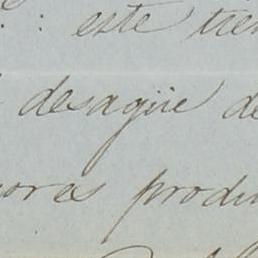 este tien
desagüe de
ores produ